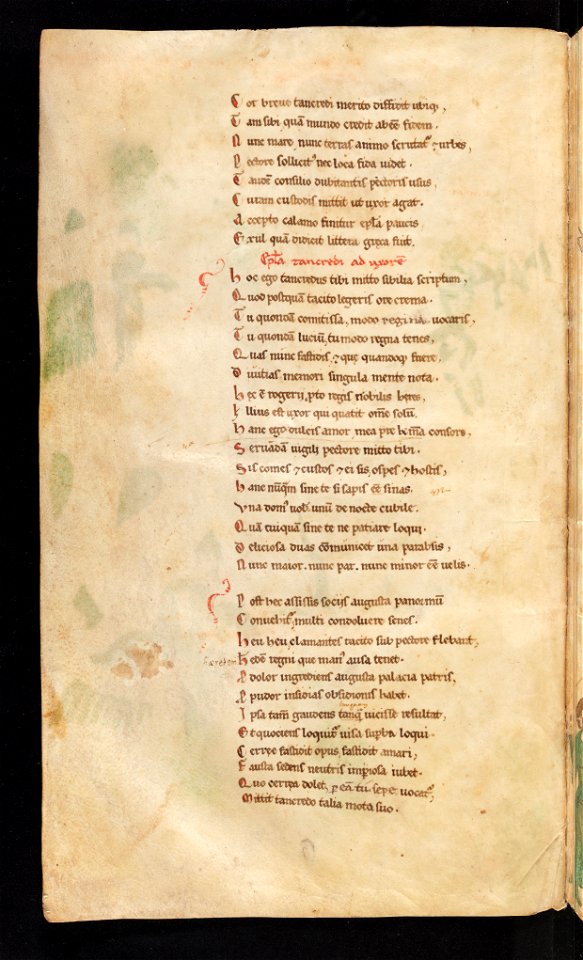 Cor breve tancredi merito diffidit ubiq;,
Tam sibi, quā mundo credit abee fidem.
Nunc mare, nunc terras animo scrutat᷑ ⁊ urbes,
Pectore sollicitꝰ nec loca fida videt.
Tandē consilio dubitantis pectoris usus,
Curam custodis mittit ut uxor agat.
Accepto calamo finitur epła paucis,
Exul quā didicit littera gręca fuit.
Epła tancredi ad uxorē
Hoc ego tancredus tibi mitto sibilia scriptum,
Quod postquā tacito legeris ore crema.
Tu quondam comitissa, modo regina vocaris,
Tu quondā lucium, tu modo regna tenes,
Quas nunc fastidis, ⁊ quę quandoq; fuere,
Divitias memori singula mente nota.
Hec ē rogerii, pto regis nobilis heres,
Illius est uxor qui quatit om̄e solū.
Hanc ego dulcis amor mea pre hēma consors,
Servādā vigili pectore mitto tibi.
Sis comes ⁊ custos ⁊ ei sis ospes ⁊ hostis,
Hanc nūq̄m sine te si sapis eē sinas.
Una domꝰ vob̄ unū de nocte cubile.
Quā cuiquā sine te ne patiare loqui.
Deliciosa duas cōmunicet una parabsis,
Nunc maior. nunc par. nunc minor eē velis.
Post hec assistis sociis augusta panormū
Convehit᷑, multi condoluere senes.
Heu heu, clamantes tacito sub pectore flebant,
haeredem
Hēdē regni que manꝰ ausa tenet.
P dolor ingrediens augusta palacia patris,
P pudor insidias obsidionis habet.
tanquam
Ipsa tam̄ gaudens tanq̄ vicisse resultat,
Et quociens loquit᷑ visa supba loqui.
Cerręe fastidit opus fastidit amari,
Fausta sedens neutris imposa iubet.
Quo cerręa dolet, p eā tū sepe vocat᷑,
Mittit tancredo talia mota suo.